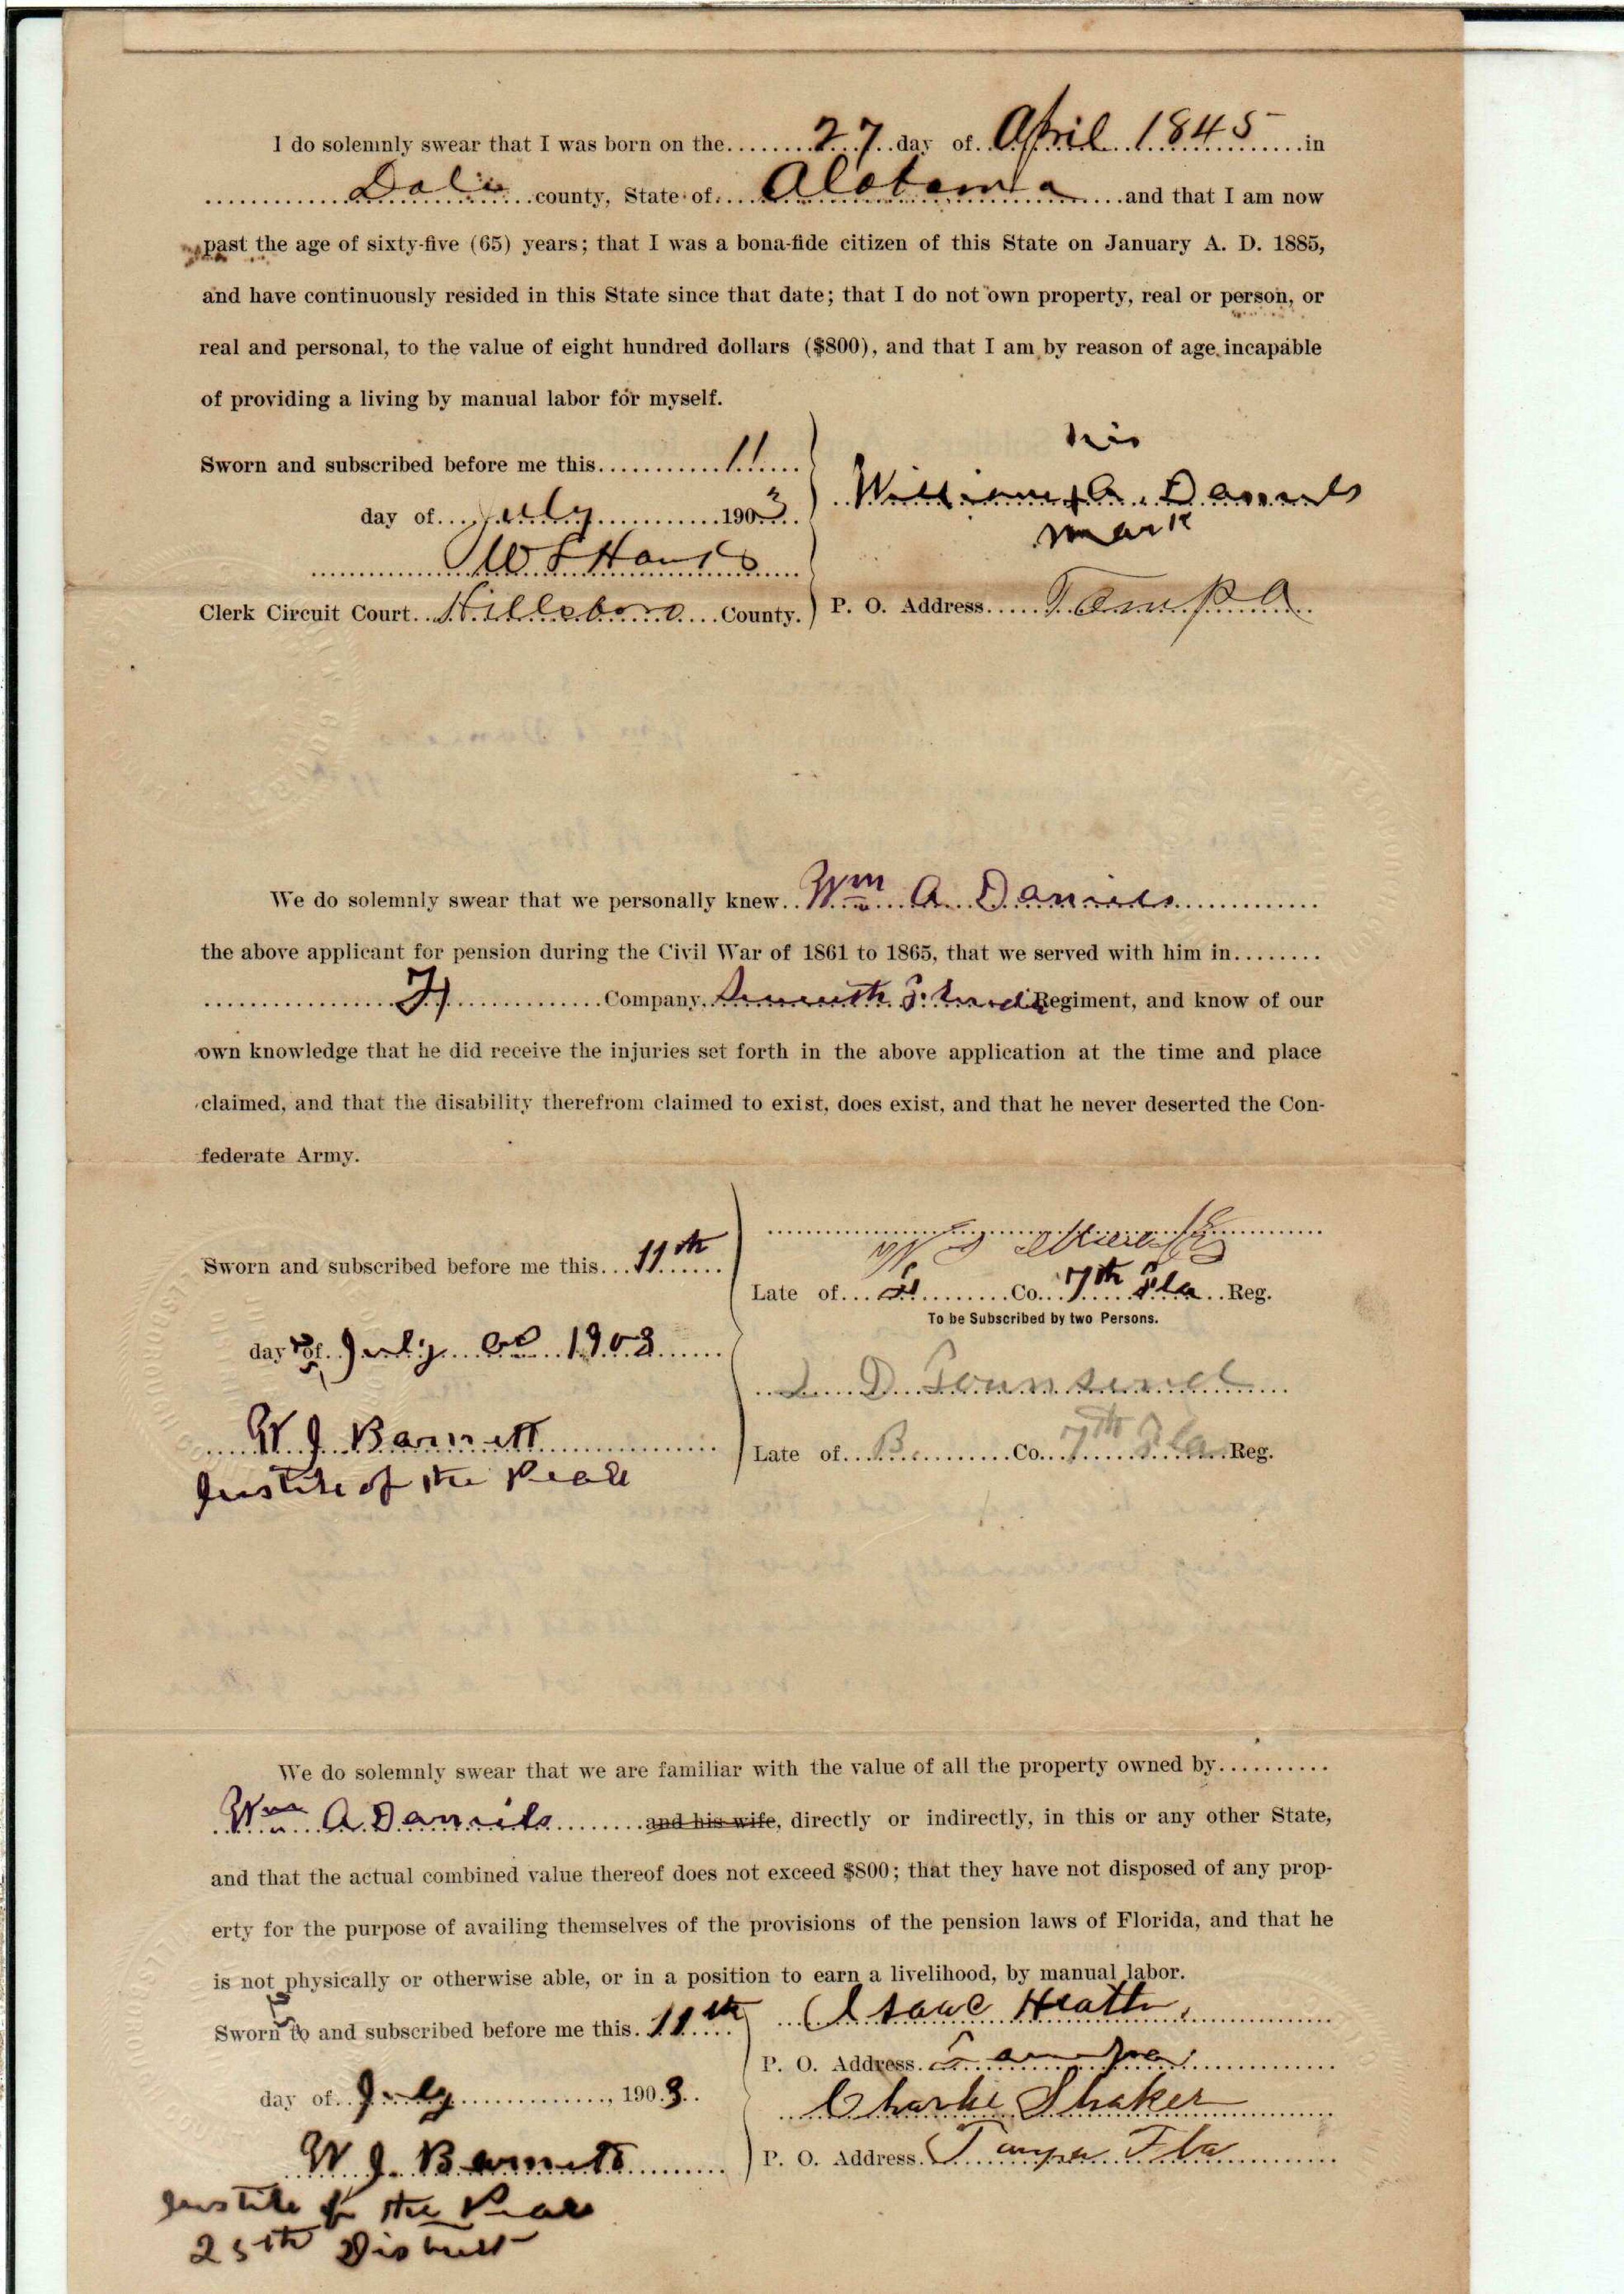 I do solemnly swear that I was born on the 27 day of April 1845 in
Dale county, State of Alabama and that I am now
past the age of sixty-five (65) years; that I was a bona-fide citizen of this State on January A. D. 1885,
and have continuously resided in this State since that date; that I do not own property, real or person, or
real and personal, to the value of eight hundred dollars ($800), and that I am by reason of age incapable
of providing a living by manual labor for myself.
his
Sworn and subscribed before me this 11
William + A. Daniels
day of July 1903
mark
Clerk Circuit Court Hillsboro County.
P. O. Address Tampa
We do solemnly swear that we personally knew Wm A. Daniels
the above applicant for pension during the Civil War of 1861 to 1865, that we served with him in
Company, Seventh Florida Regiment, and know of our
own knowledge that he did receive the injuries set forth in the above application at the time and place
claimed, and that the disability therefrom claimed to exist, does exist, and that he never deserted the Con-
federate Army.
Sworn and subscribed before me this 11th
Late of Co. 7th Fla Reg.
To be Subscribed by two Persons.
day of July AD 1903
D. Townsend
W. J. Barnett
Late of B Co. 7th Fla Reg.
Justice of the Peace
We do solemnly swear that we are familiar with the value of all the property owned by
Wm A Daniels and his wife, directly or indirectly, in this or any other State,
and that the actual combined value thereof does not exceed $800; that they have not disposed of any prop-
erty for the purpose of availing themselves of the provisions of the pension laws of Florida, and that he
is not physically or otherwise able, or in a position to earn a livelihood, by manual labor.
Sworn to and subscribed before me this 11th
Isaac Heath
P. O. Address. Tampa
day of July, 1903
Charlie Shaker
W. J. Barnett
P. O. Address. Tampa Fla
Justice of the Peace
25th District